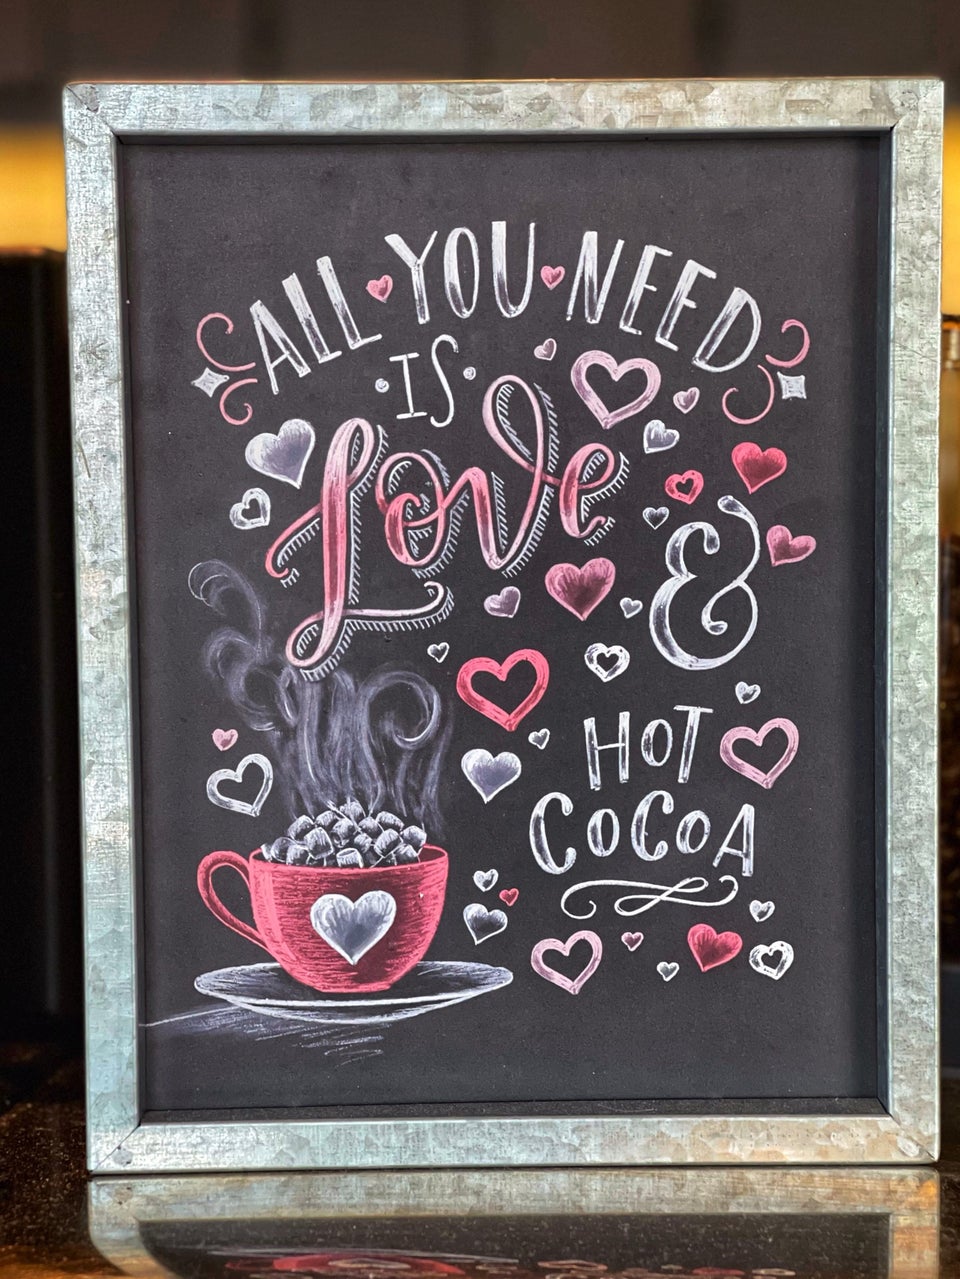 ALL YOU NEED
IS
Love
&
HOT
COCOA